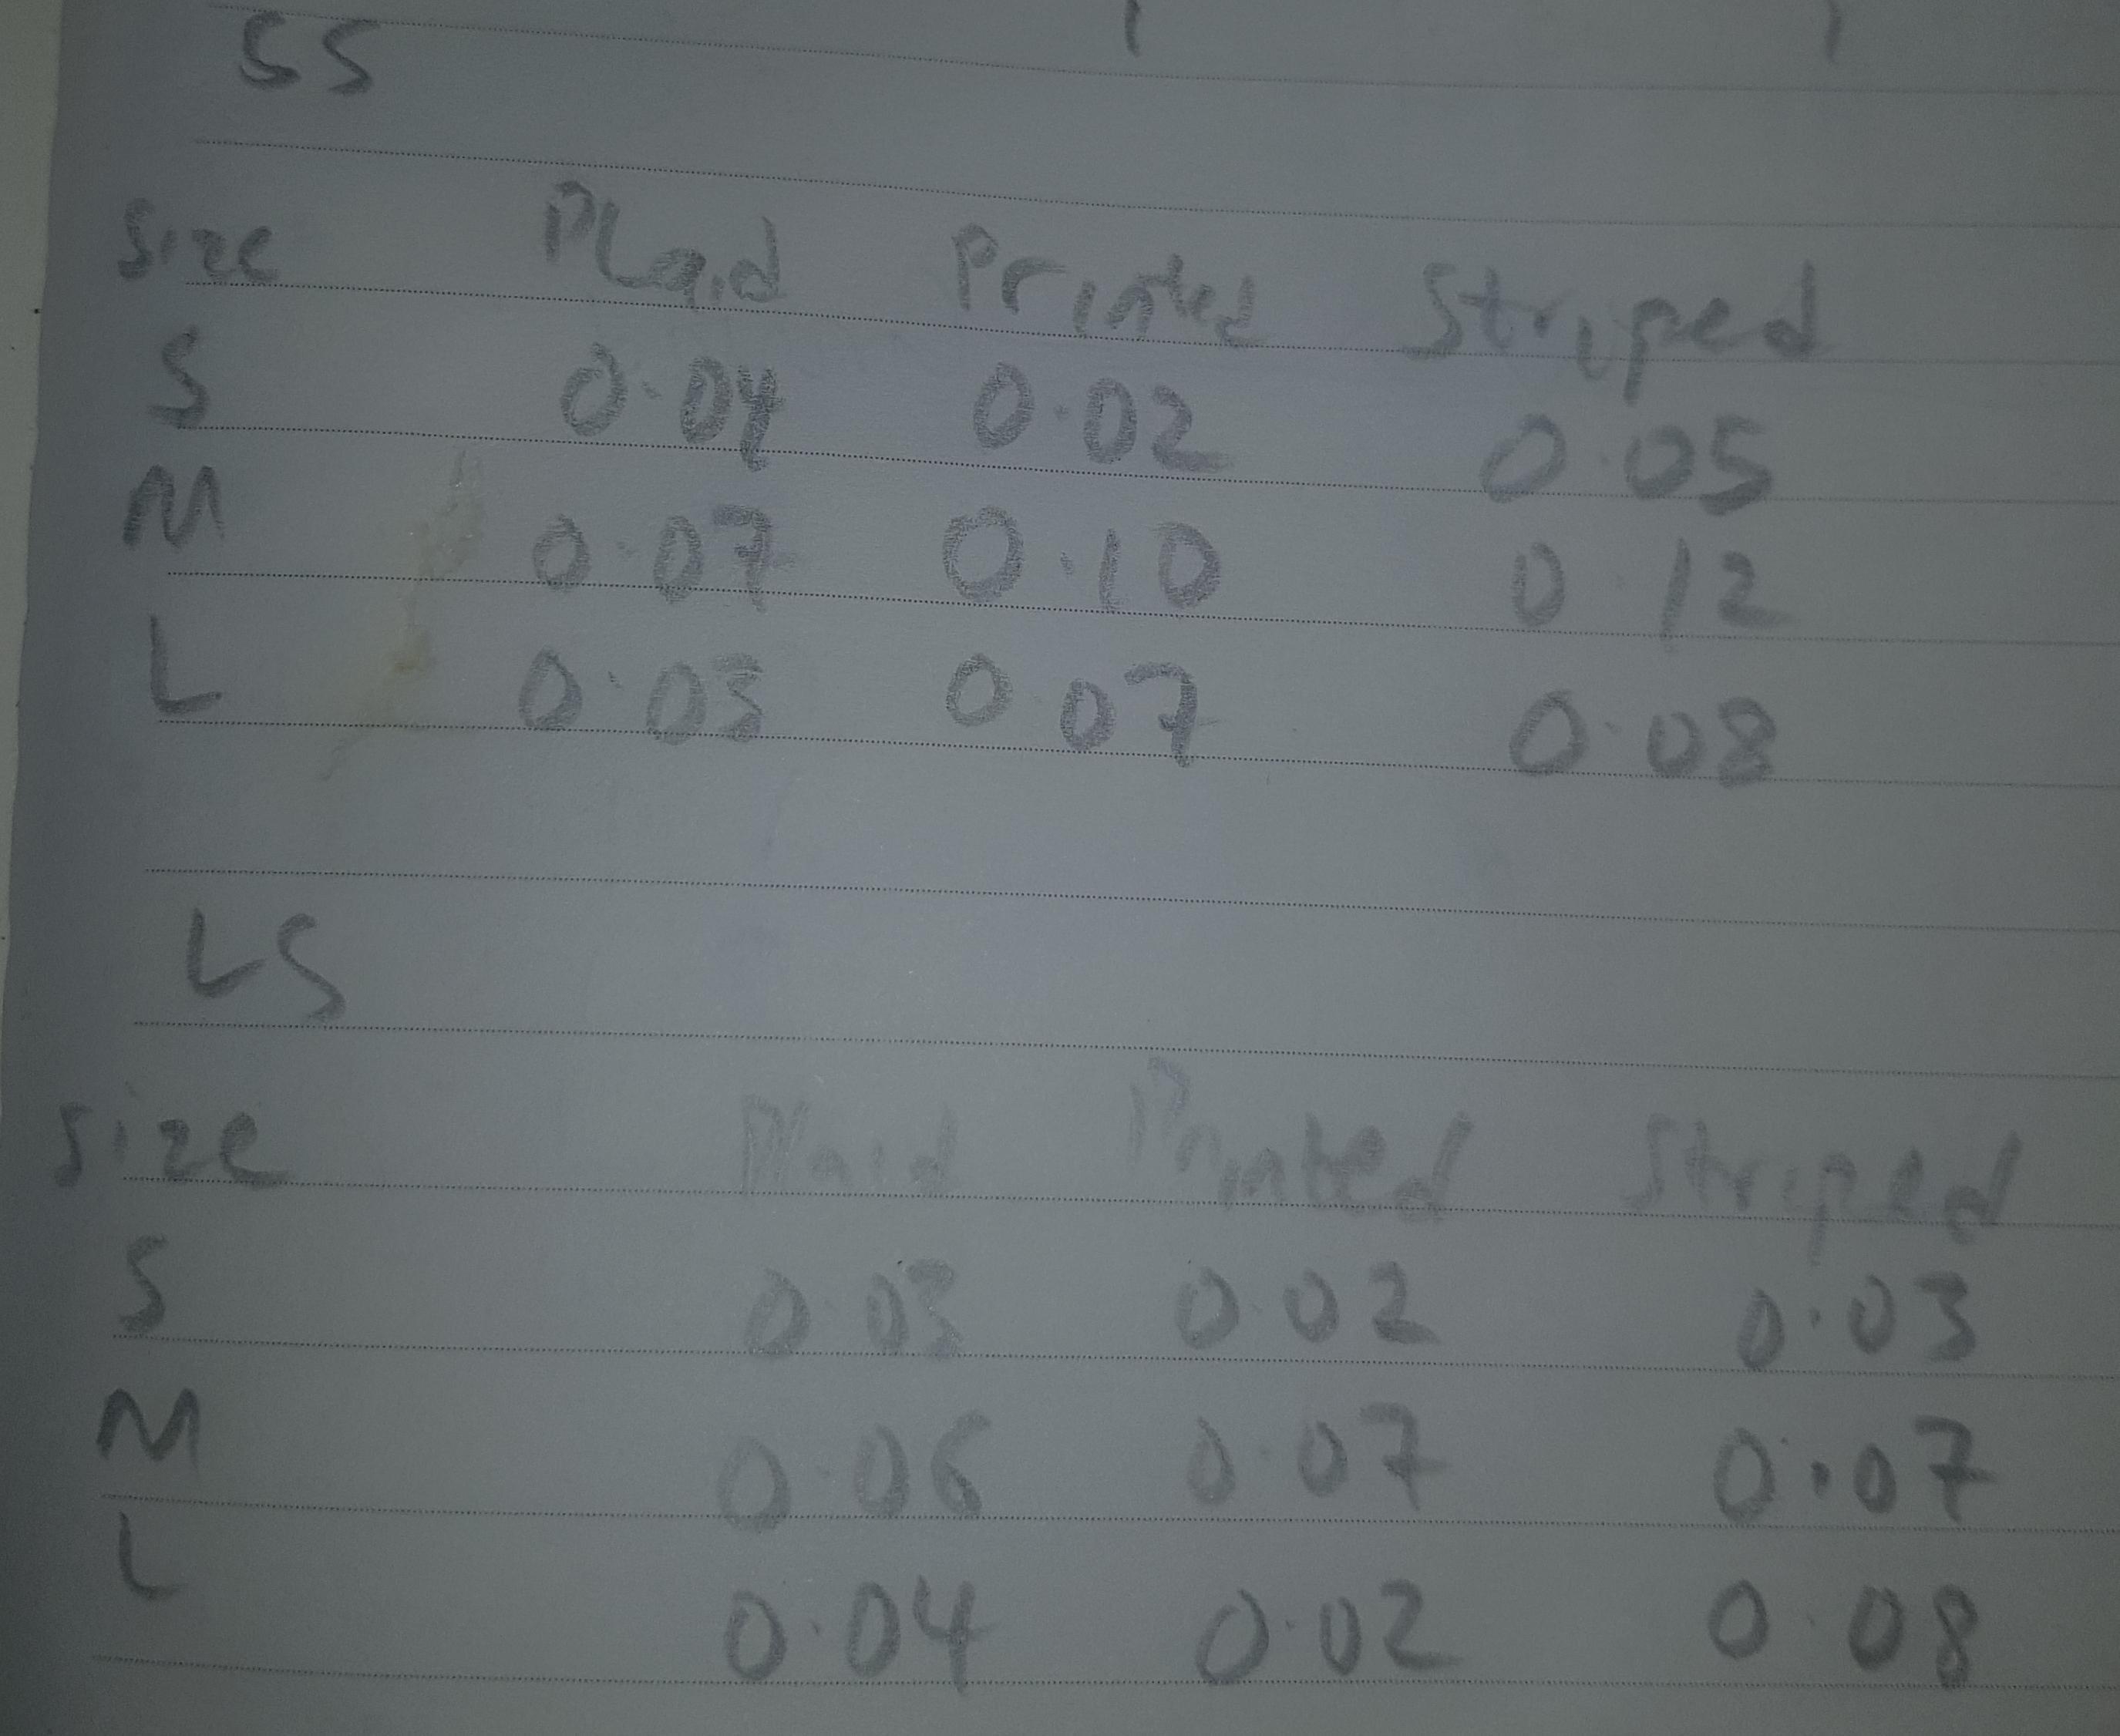 SS
Size Plaid Printed Striped
S 0.04 0.02 0.05
M 0.07 0.10 0.12
L 0.03 0.07 0.08
LS
Size Plaid Printed Striped
S 0.03 0.02 0.03
M 0.06 0.07 0.07
L 0.04 0.02 0.08